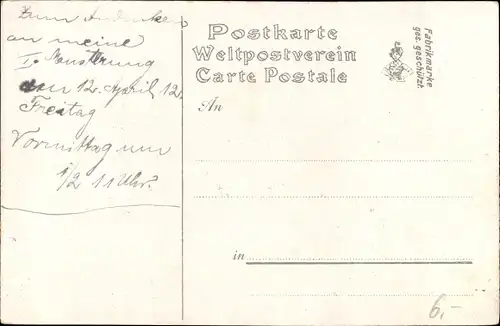 Zum Andenken
an meine
I. Musterung
am 12. April 12.
Freitag
Vormittag um
1/2 11 Uhr.
Postkarte
Weltpostverein
Carte Postale
Fabrikmarke
ges. geschützt.
An
in
6,-